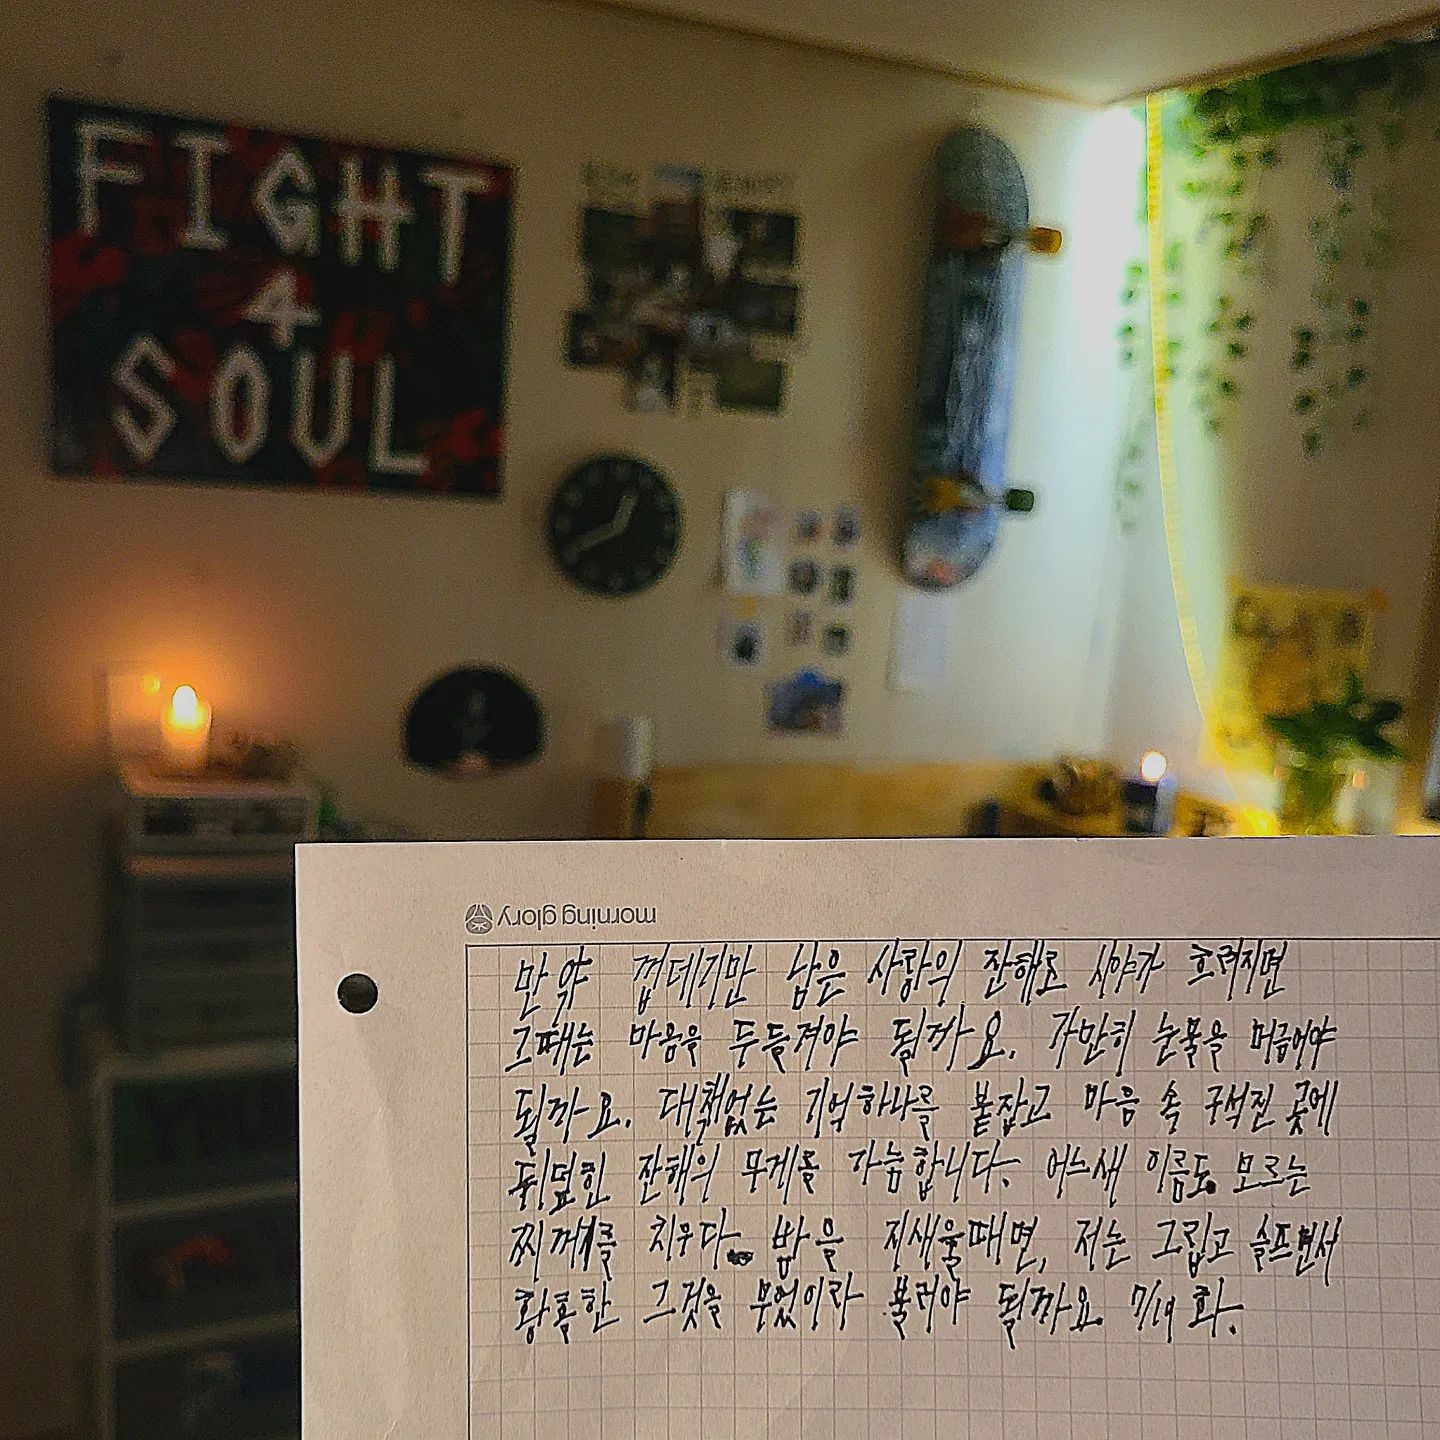 FIGHT
4
SOUL
morning glory
만약 껍데기만 남은 사랑의 잔해로 시야가 흐려지면
그때는 마음을 두들겨야 될까요. 가만히 눈물을 머금어야
될까요. 대책없는 기억하나를 붙잡고 마음 속 구석진 곳에
뒤덮힌 잔해의 무게를 가늠합니다. 어느새 이름도 모르는
찌꺼기를 치우다 밤을 지새울때면, 저는 그립고 슬프면서
황홀한 그것을 무엇이라 불러야 될까요. 7/19 화.